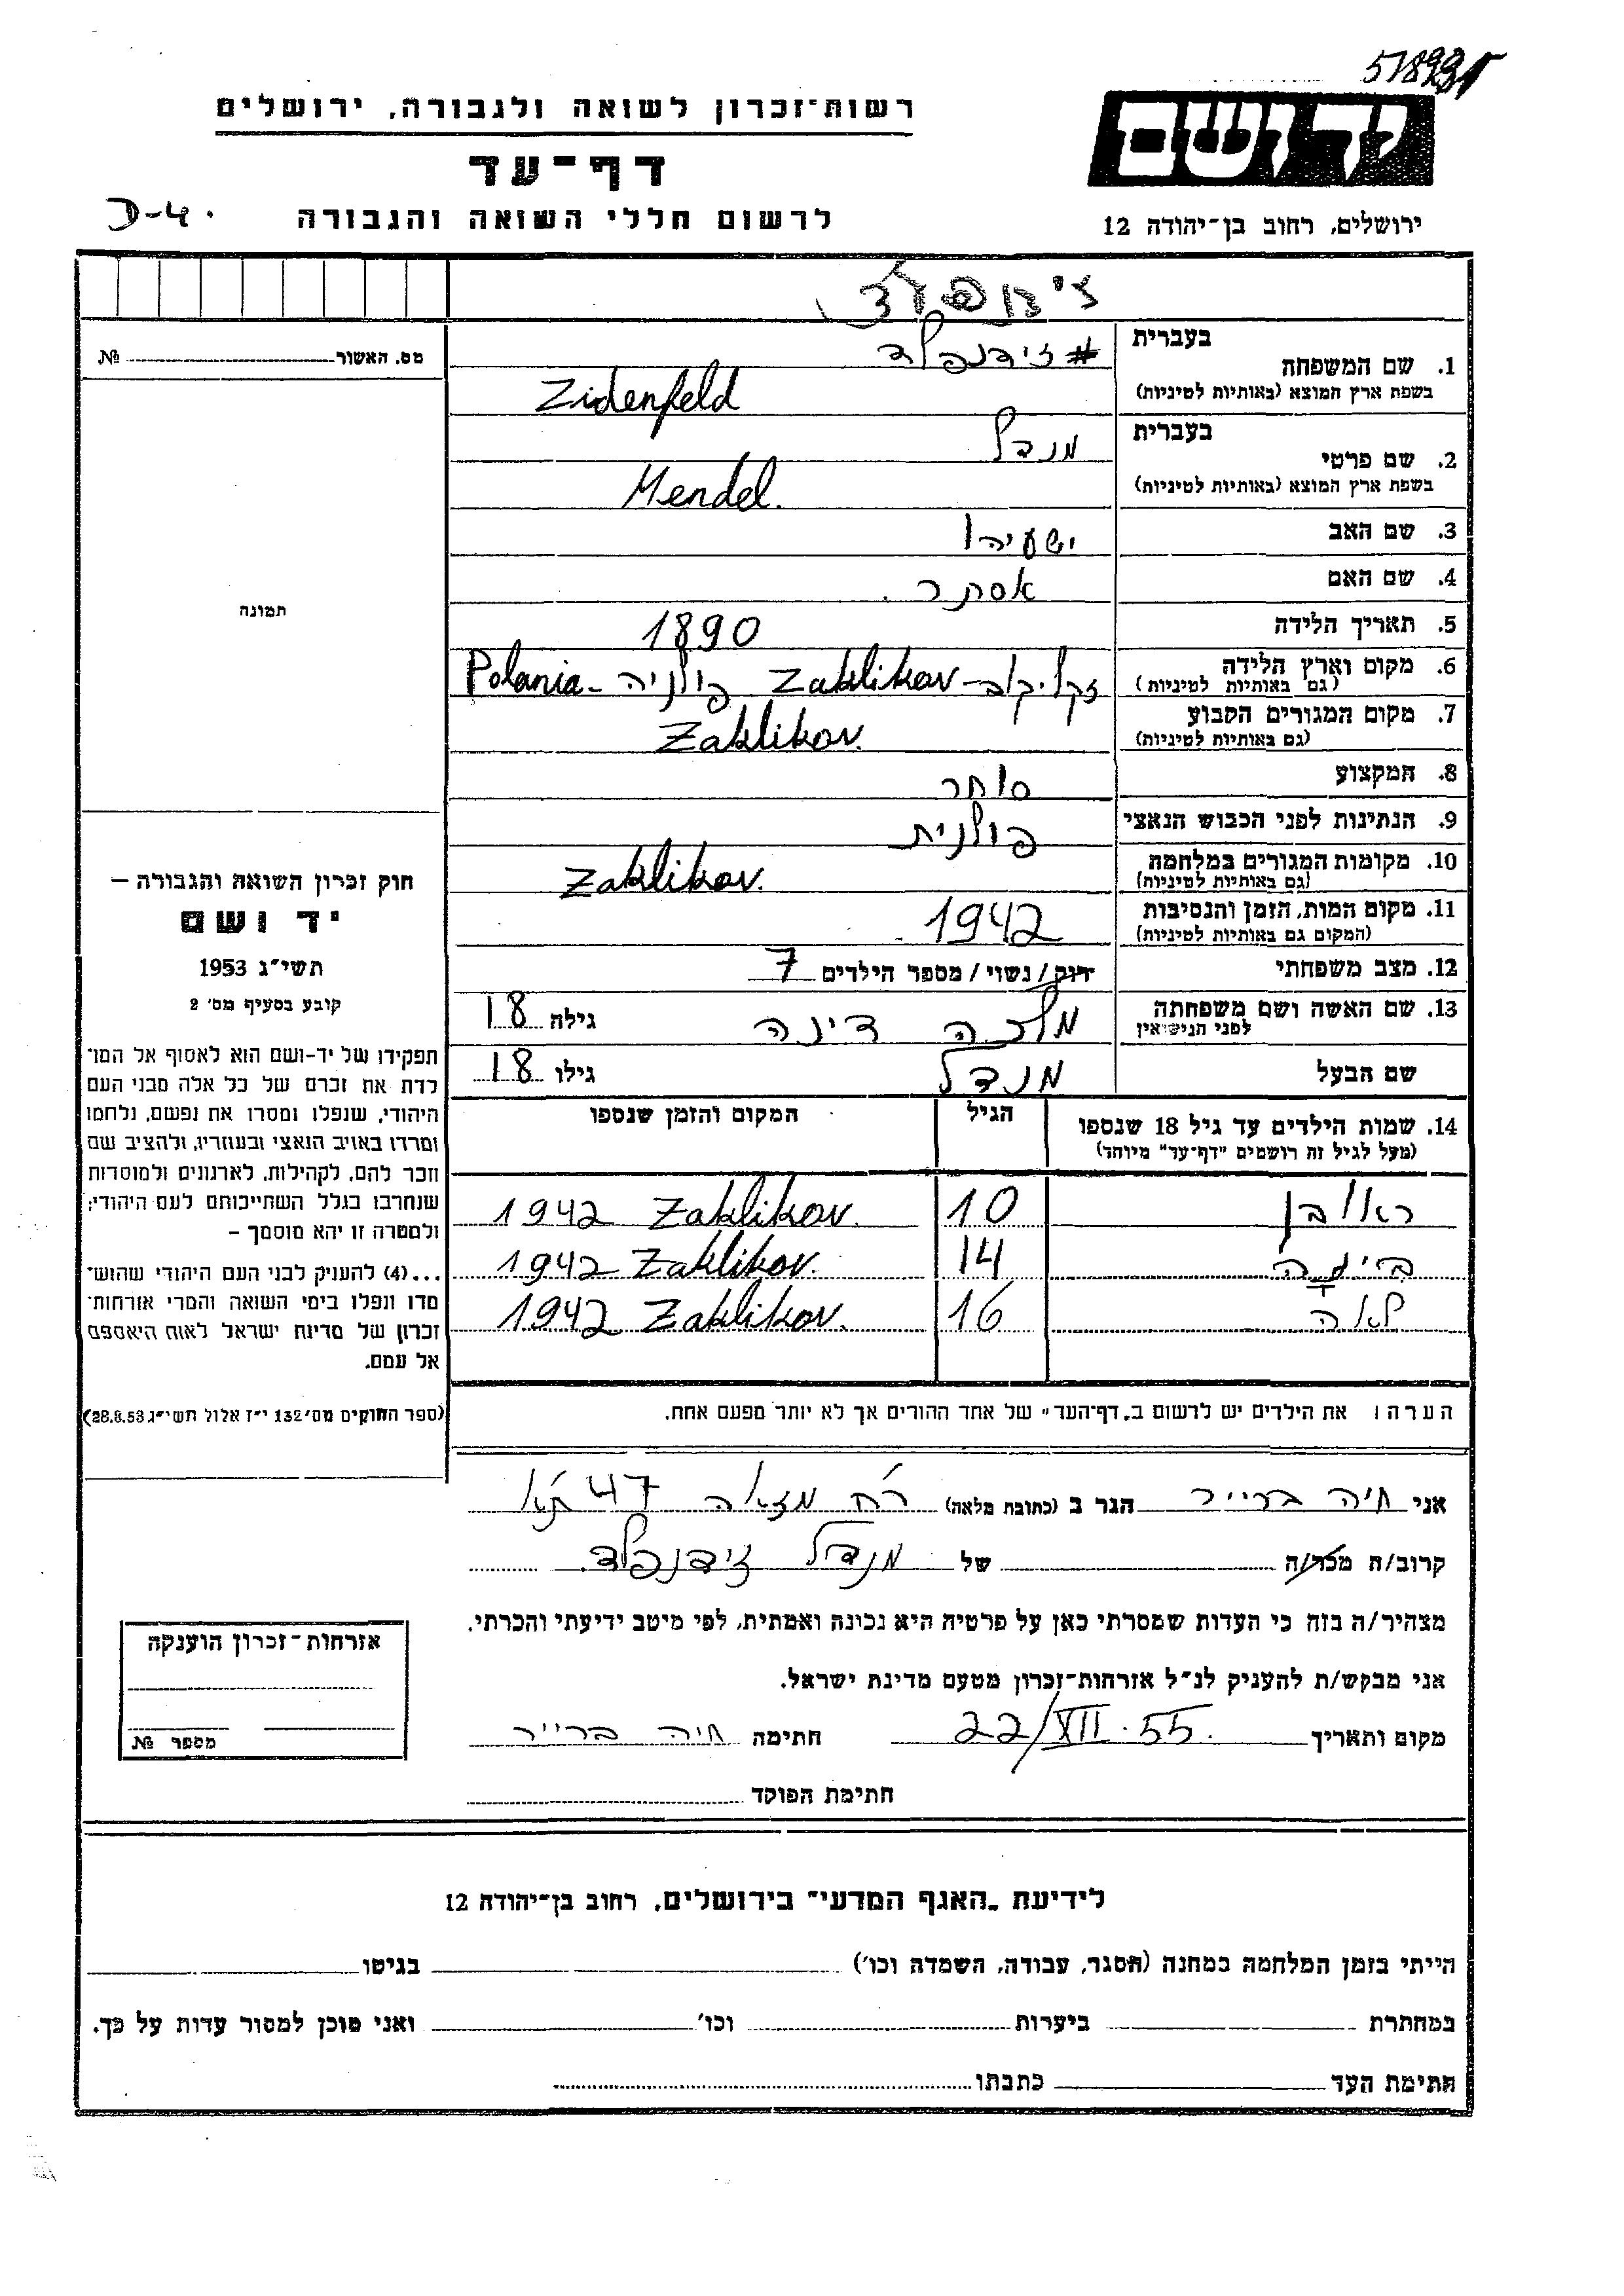 רשות־זכרון לשואה ולגבורה, ירושלים
דף־עד
לרשום חללי השואה והגבורה
D-4.
יד ושם
ירושלים, רחוב בן־יהודה 12
מס. האשור № 
בעברית
1. שם המשפחה זידנפלד
בשפת ארץ המוצא (באותיות לטיניות) Zidenfeld
בעברית
2. שם פרטי מנדל
בשפת ארץ המוצא (באותיות לטיניות) Mendel.
3. שם האב ישעיהו
4. שם האם אסתר.
5. תאריך הלידה 1890
6. מקום וארץ הלידה זקליקוב - Zaklikov פולניה - Polania
(גם באותיות לטיניות)
7. מקום המגורים הקבוע Zaklikov.
(גם באותיות לטיניות)
8. המקצוע סוחר
9. הנתינות לפני הכבוש הנאצי פולנית
10. מקומות המגורים במלחמה Zaklikov.
(גם באותיות לטיניות)
11. מקום המות, הזמן והנסיבות 1942
(המקום גם באותיות לטיניות)
12. מצב משפחתי רווק / נשוי / מספר הילדים 7
13. שם האשה ושם משפחתה מלכה דינה גילה 18
לפני הנישואין
שם הבעל מנדל גילו 18
14. שמות הילדים עד גיל 18 שנספו הגיל המקום והזמן שנספו
(מעל לגיל זה רושמים "דף־עד" מיוחד)
ראובן 10 Zaklikov. 1942
14 Zaklikov. 1942
לאה 16 Zaklikov. 1942
הערה: את הילדים יש לרשום ב"דף־העד" של אחד ההורים אך לא יותר מפעם אחת.
תמונה
חוק זכרון השואה והגבורה –
יד ושם
תשי"ג 1953
קובע בסעיף מס' 2
תפקידו של יד-ושם הוא לאסוף אל המו־
לדת את זכרם של כל אלה מבני העם
היהודי, שנפלו ומסרו את נפשם, נלחמו
ומרדו באויב הנאצי ובעוזריו, ולהציב שם
וזכר להם, לקהילות, לארגונים ולמוסדות
שנחרבו בגלל השתייכותם לעם היהודי;
ולמטרה זו יהא מוסמך –
...(4) להעניק לבני העם היהודי שהוש־
מדו ונפלו בימי השואה והמרי אזרחות־
זכרון של מדינת ישראל לאות היאספם
אל עמם.
(ספר החוקים מס' 132 י"ז אלול תשי"ג 28.8.53)
אני חיה ברייר הגר ב (כתובת מלאה) רח' מזא"ה 47 ת"א
קרוב/ה מכר/ה של מנדל זידנפלד.
מצהיר/ה בזה כי העדות שמסרתי כאן על פרטיה היא נכונה ואמתית, לפי מיטב ידיעתי והכרתי.
אני מבקש/ת להעניק לנ"ל אזרחות־זכרון מטעם מדינת ישראל.
מקום ותאריך 22/XII.55. חתימה חיה ברייר
חתימת הפוקד
אזרחות־זכרון הוענקה
מספר №
לידיעת "האגף המדעי" בירושלים, רחוב בן־יהודה 12
הייתי בזמן המלחמה במחנה (הסגר, עבודה, השמדה וכו') בגיטו
במחתרת ביערות וכו' ואני מוכן למסור עדות על כך.
חתימת העד כתבתו